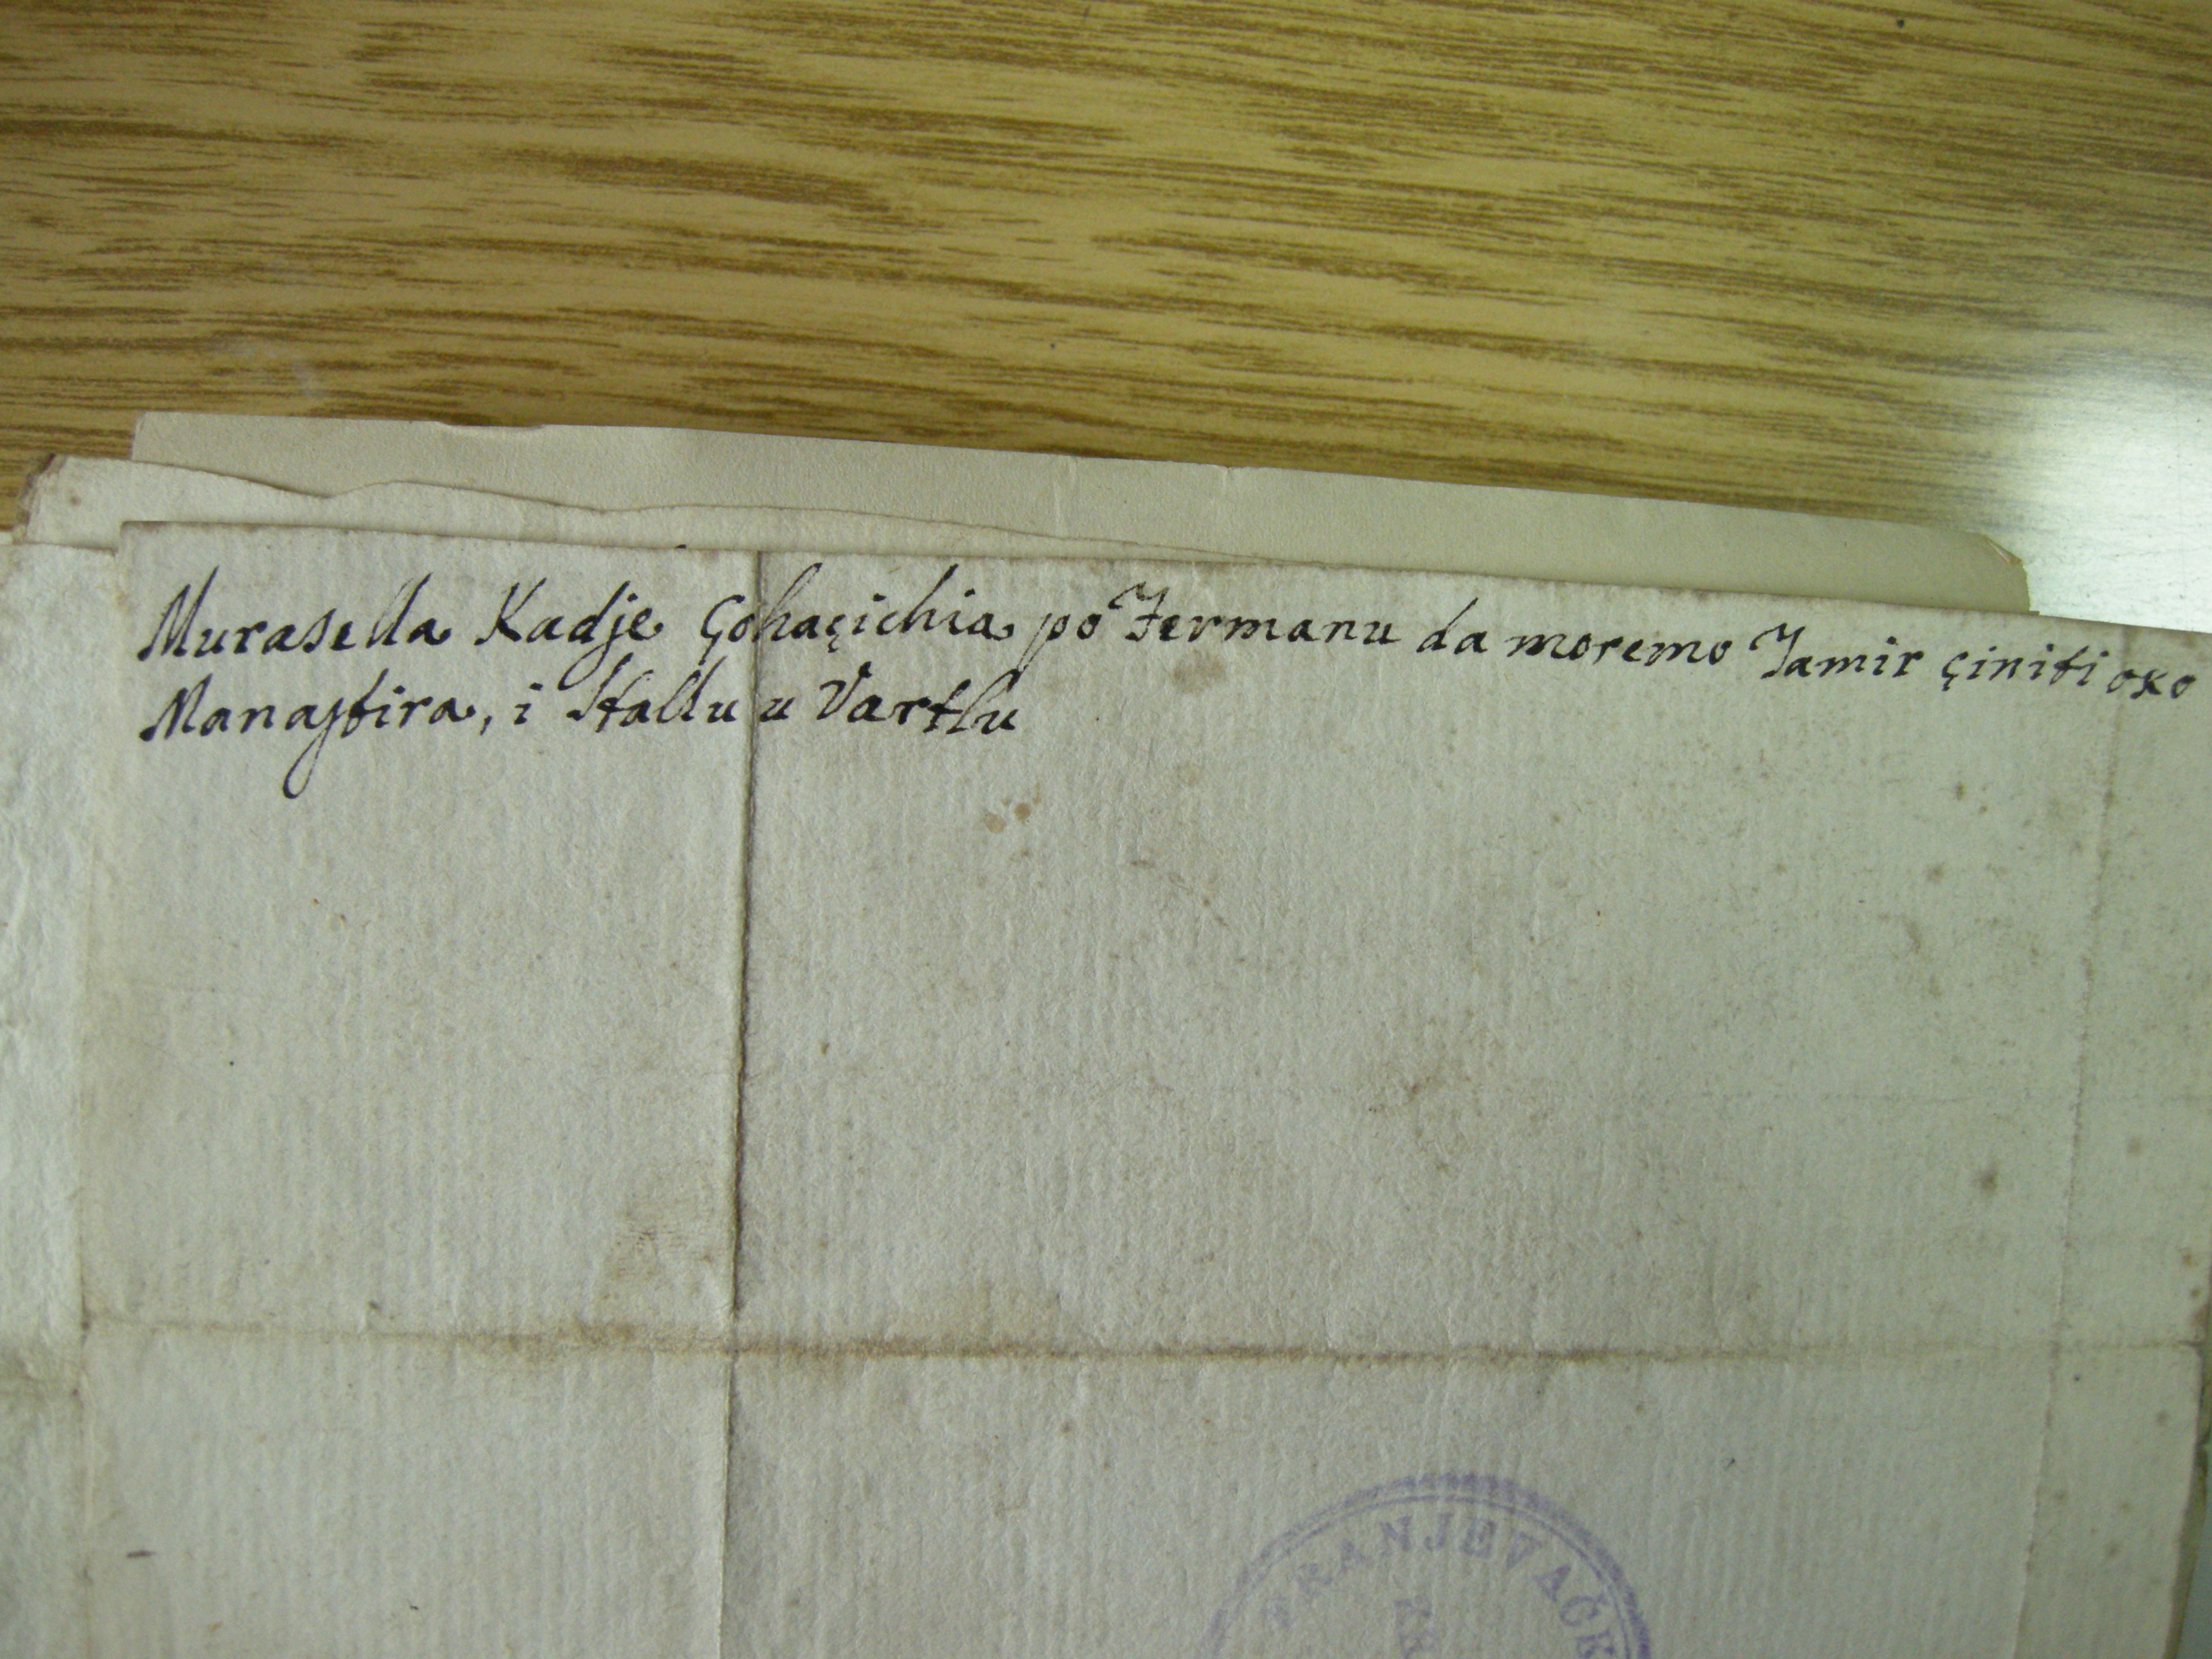 Murasella Kadje Çohaçichia po Fermanu da moremo Tamir çiniti oko
Manastira, i Stallu u Vartlu
FRANJEVAČK